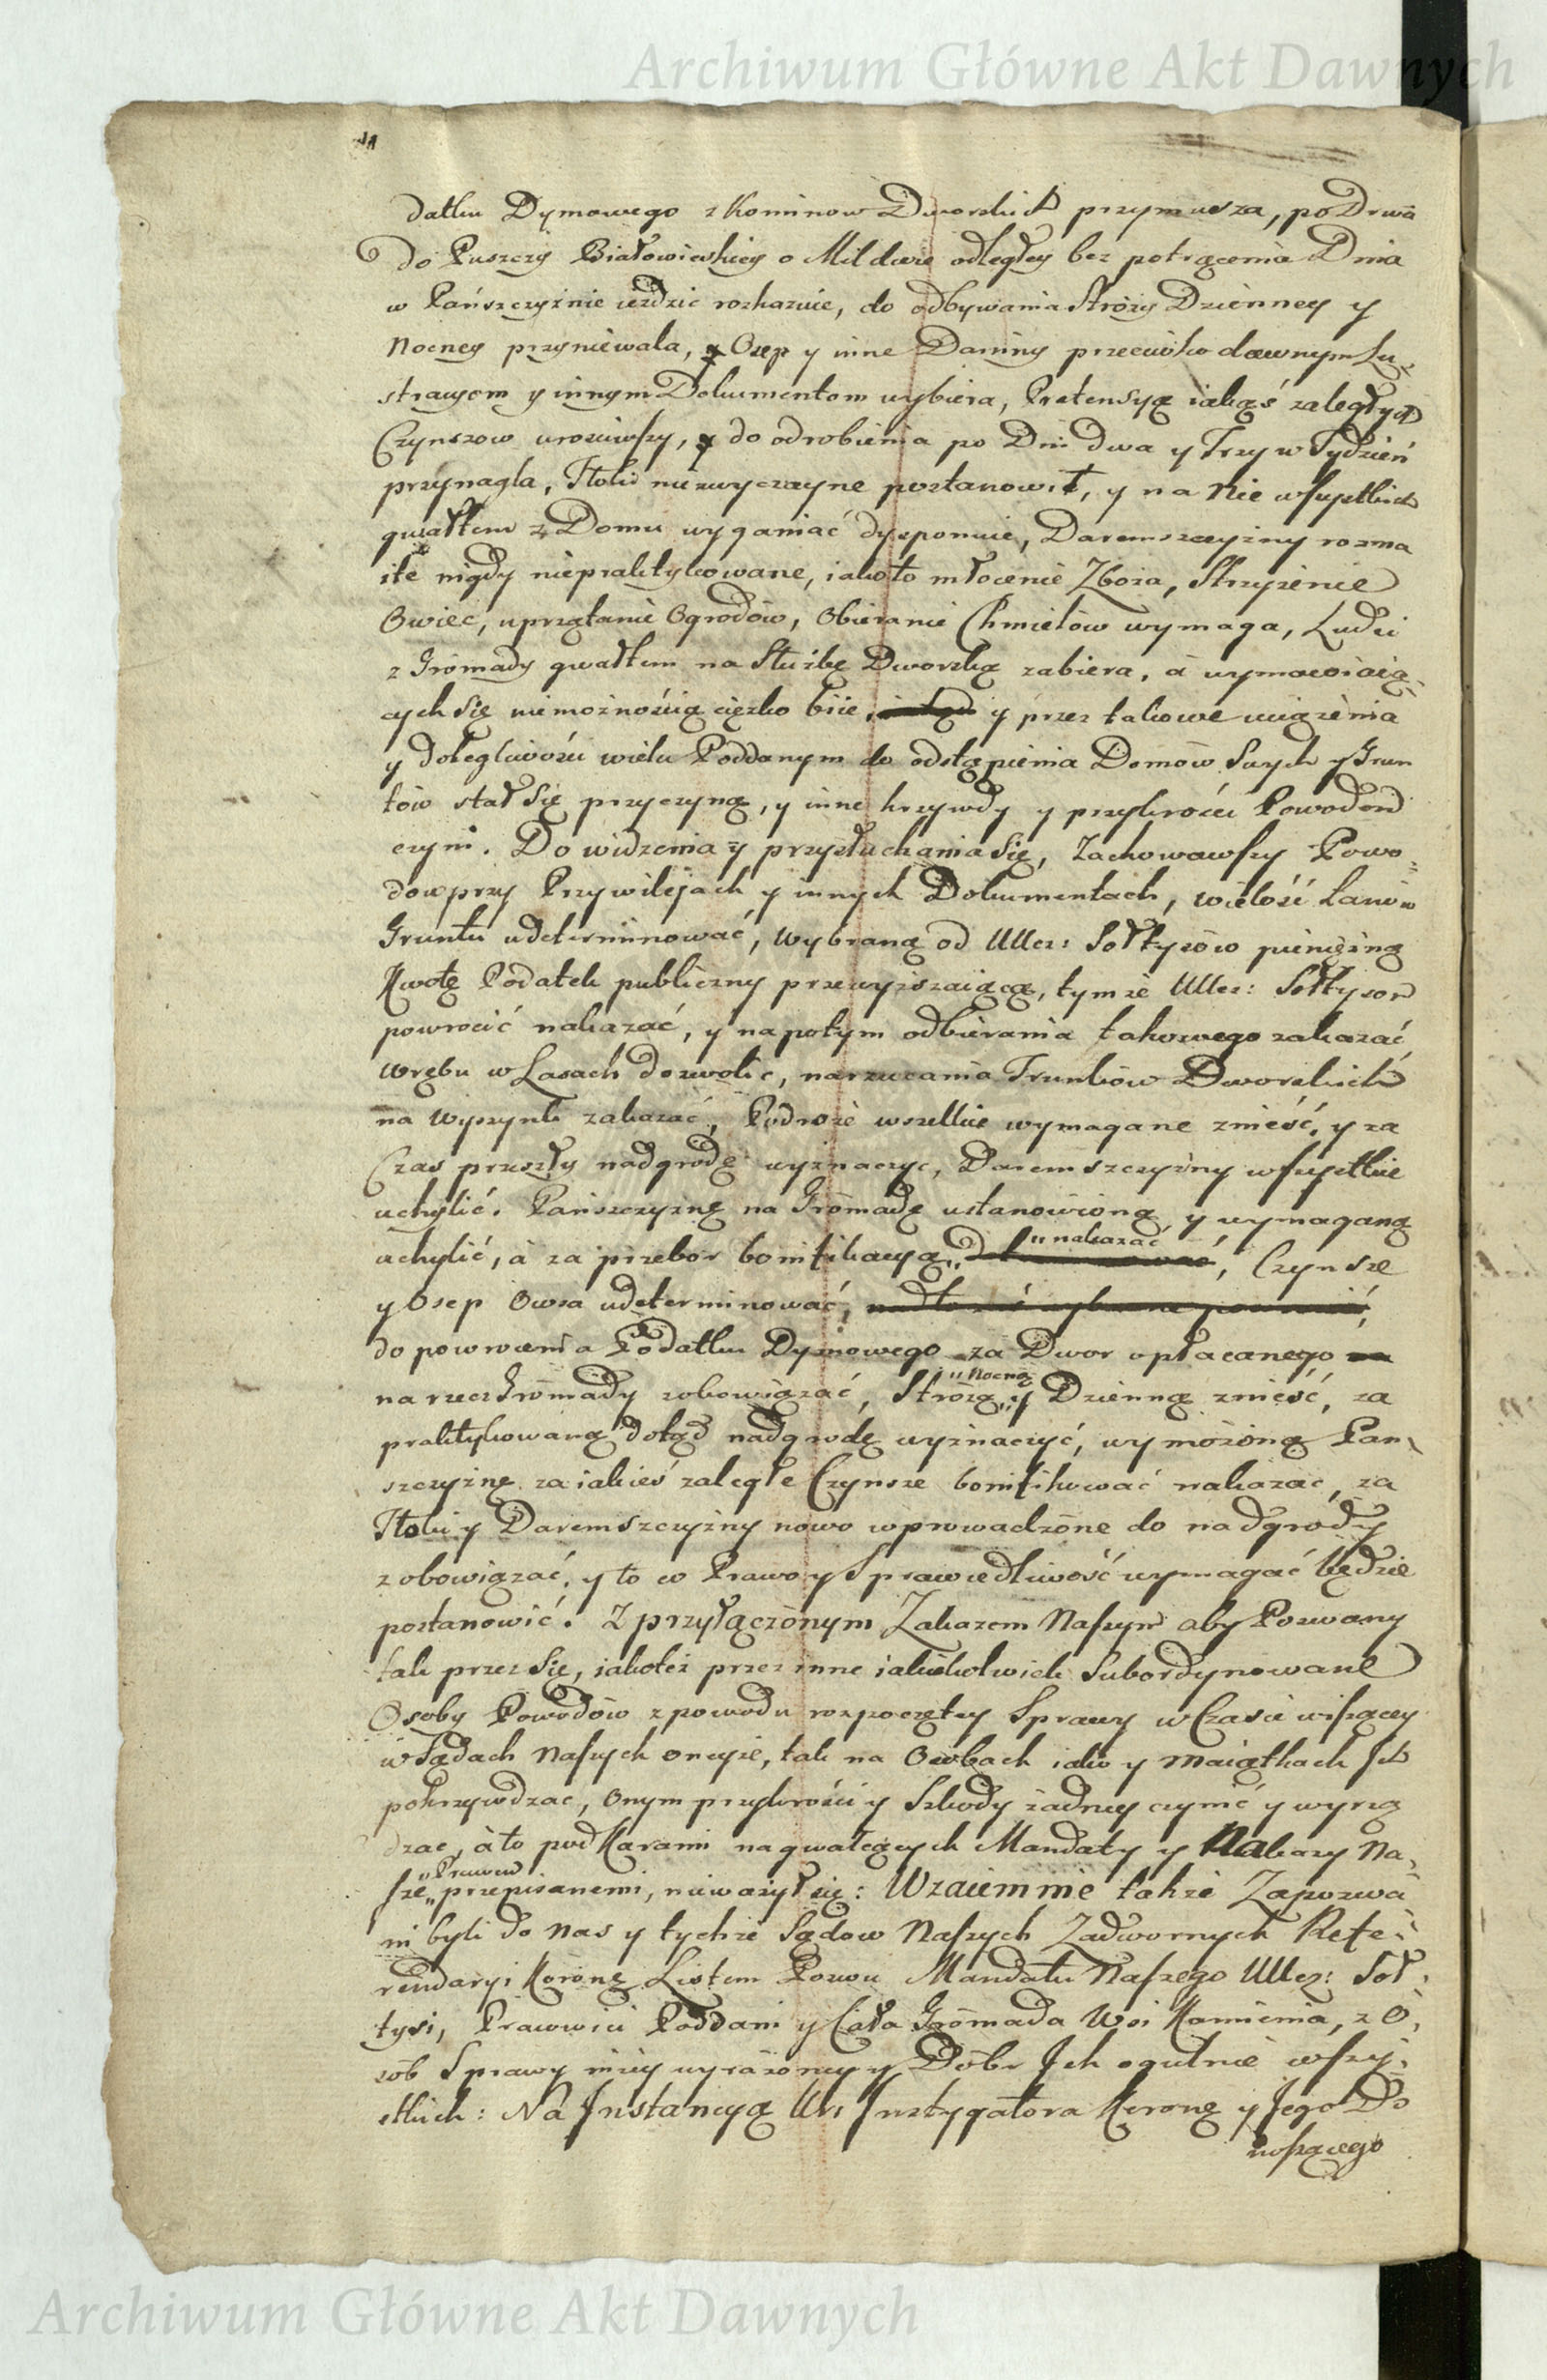 Archiwum Główne Akt Dawnych
datku Dymowego z Kominow Dworskich przymusza, po Drwa
do Puszczy Białowieskiey o Mil dwie odległey bez potrącenia Dnia
w Pańszczyźnie ieździc rozkazuie, do odbywania Stróży Dzienney y
Nocney przyniewala, Osep y inne Daniny przeciwko dawnym Lu-
stracyom y innym Dokumentom wybiera, Pretensyą iakąś zaległych
Czynszow urościwszy, do odrobienia po Dni dwa y Trzy w Tydzień
przynagla, Tłoki niezwyczayne postanowił, y na Nie wszystkich
gwałtem z Domu wyganiać dysponuie, Daremszczyzny rozma
ite nigdy niepraktykowane, iako to młocenie Zboża, Strzyżenie
Owiec, uprzątanie Ogrodów, Obieranie Chmielów wymaga, Ludzi
z Gromady gwałtem na Służbę Dworską zabiera, a wymawiaią-
cych się niemożnością ciężko biie, y przez takowe uciążenia
y dolegliwości wielu Poddanym do odstąpienia Domow Swych y Grun
tów stał się przyczyną, y inne krzywdy y przykrości Powodom
czyni. Do widzenia y przysłuchania się, Zachowawszy Powo-
dow przy Przywilejach y innych Dokumentach, wielość Łanow
Gruntu udeterminować, Wybraną od UUcz: Sołtysów pieniężną
Kwotę Podatek publiczny przewyższaiącą, tymże UUcz: Sołtysom
powrocić nakazać, y na potym odbierania takowego zakazać
Wrębu w Lasach dozwolic, narzucania Trunków Dworskich
na Wyszynk zakazać, Podroże wszelkie wymagane znieść, y za
Czas przeszły nadgrodę wyznaczyc, Daremszczyzny wszystkie
uchylić. Pańszczyznę na Gromadę ustanowioną y wymaganą
uchylić, a za przebor bonifikacyą „nakazać, Czynsze
y Osep Owsa udeterminować,
do powrócenia Podatku Dymowego za Dwor opłacanego
na rzecz Gromady zobowiązać, Stróżą „Nocną y Dzienną znieść, za
praktykowaną dotąd nadgrodę wyznaczyć, wymożoną Pan-
szczyznę za iakieś zaległe Czynsze bonifikować nakazać, za
Tłoki y Daremszczyzny nowo wprowadzone do nadgrody
zobowiązać, y to co Prawo y Sprawiedliwość wymagać będzie
postanowić. Z przyłączonym Zakazem Naszym aby Pozwany
tak przez się, iako też przez inne iakiekolwiek Subordynowane
Osoby Powodów z powodu rozpoczętey Sprawy w Czasie wiszącey
w Sądach Naszych oneyże, tak na Osobach iako y maiątkach Ich
pokrzywdzac, Onym przykrości y Szkody żadney czynić y wyrzą
dzac, a to pod Karami na gwałcących Mandaty y Nakazy Na-
sze „Prawem przepisanemi, nieważył się: Wzaiemnie także Zapozwa
ni byli do Nas y tychże Sądow Naszych Zadwornych Refe-
rendaryi Koronę Listem Pozwu Mandatu Naszego UUcz: Soł-
tysi, Pracowici Poddani y Cała Gromada Wsi Kamienia, z O-
sób Sprawy niżey wyrażoney y Dóbr Ich ogulnie wszy-
stkich: Na Instancyą Ur: Instygatora Koronę y Jego Do
noszącego
Archiwum Główne Akt Dawnych